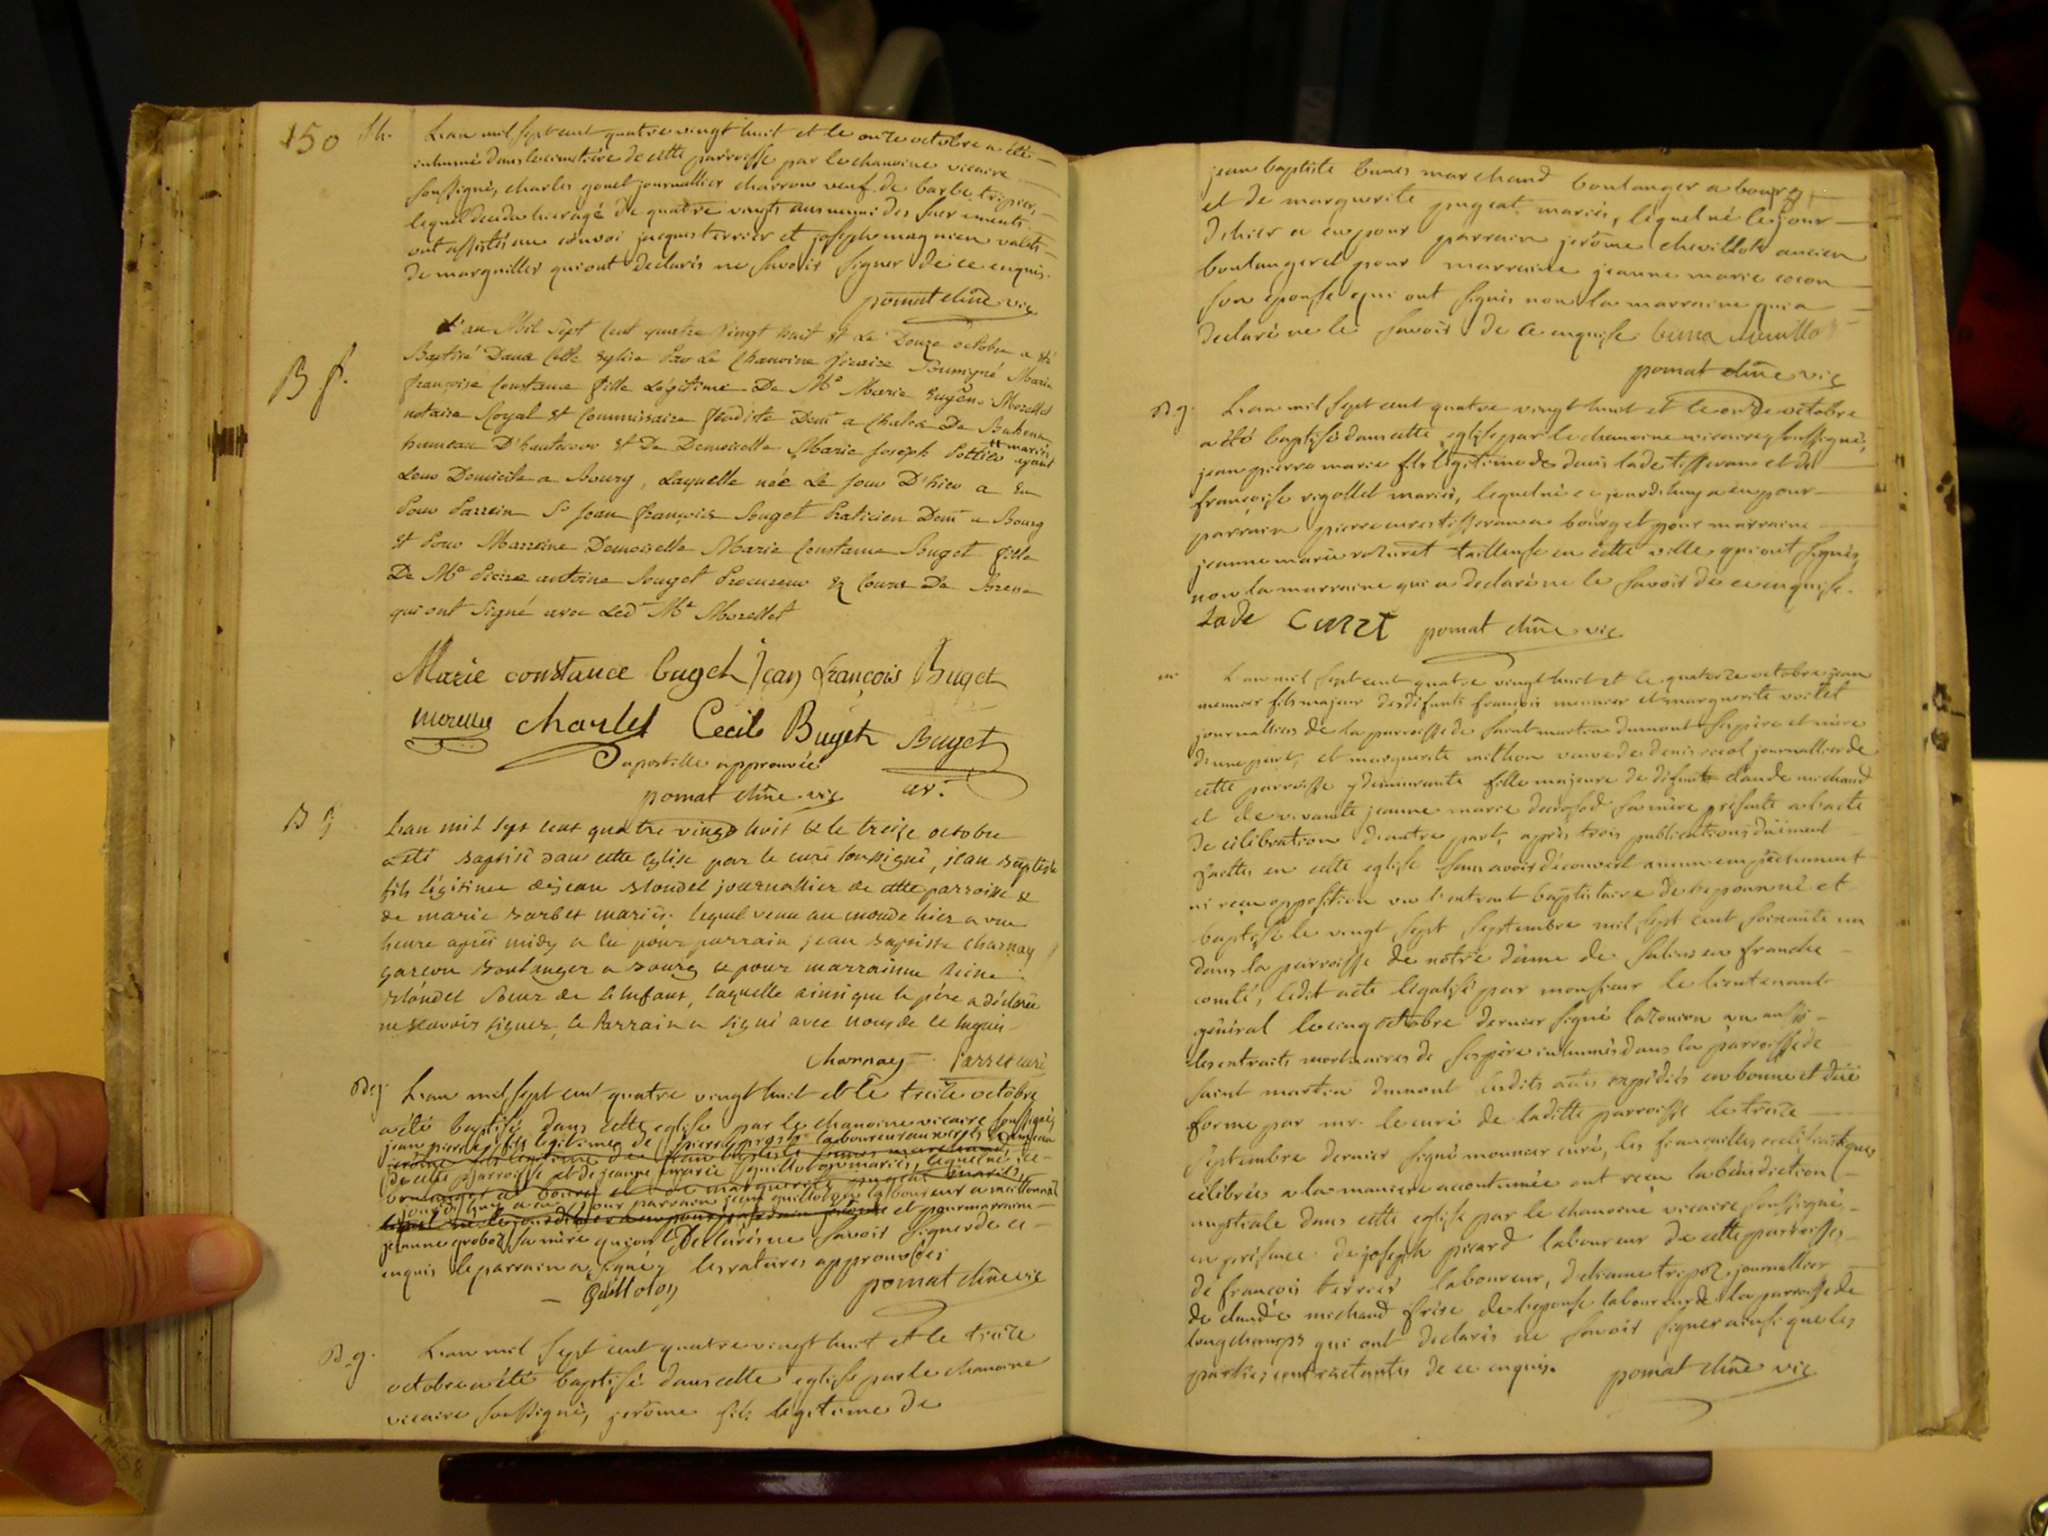 150 Sh. L'an mil sept cent quatre vingt huit et le onze octobre a été
inhumé dans le cimetière de cette parroisse par le chanoine vicaire
soussigné, charles gonet journallier charron veuf de barbe tripier,
lequel décédé hier agé de quatre vingts ans muni des sacrements
ont assistés au convoi jacques terrier et joseph magnien valets
de marguillier qui ont declarés ne savoir signer de ce enquis.
pomat chne vic
B f. L'an Mil Sept Cent quatre Vingt huit & Le Douze octobre a été
Baptisé Dans Cette Eglise Par Le Chanoine Vicaire Soussigné Marie
françoise Constance fille Légitime De Me Marie Eugène Morellet
notaire Royal & Commissaire feodiste Demt a
hameau D'hauteconr & De Demoiselle Marie Joseph Pottier mariés ayant
Leur Domicile a Bourg, Laquelle née Le Jour D'hier a Eu
Pour Parrein Sr Jean françois Buget Praticien Demt a Bourg
& Pour Marreine Demoiselle Marie Constance Buget fille
De Me Pierre antoine Buget Procureur Es Cours De Bresse
qui ont Signé avec Led. Me Morellet
Marie constance Buget Jean françois Buget
morellet charlet Cecile Buget Buget
apostille approuvée av.
pomat chne vic
B g L'an mil sept cent quatre vingt huit et le treize octobre
a été baptisé dans cette Eglise par le curé soussigné, jean Baptiste
fils légitime de jean blondel journallier de cette parroisse et
de marie barbet mariés. lequel venu au monde hier a une
heure après midy a eu pour parrain jean Baptiste Charnay
garçon Boulanger a Bourg et pour marrainne Reine
blondel soeur de l'Enfant, laquelle ainsi que le père a déclaré
ne scavoir signer, le Parrain a signé avec nous de ce Enquis
Charnay curé
B.g L'an mil sept cent quatre vingt huit et le treize octobre
a été baptisé dans cette eglise par le chanoine vicaire soussigné,
jean pierre fils legitime de pierre laboureur
de cette parroisse et de jeanne marie guilloton mariés, lequel né ce
jourdhuy a eu pour parrain jean guilloton laboureur a meillonnas
et pour marraine
jeanne groboz sa mère qui ont Declarés ne savoir signer de ce
enquis le parrain a signé, les ratures approuvées
Guilloton pomat chne vic
B.g. L'an mil sept cent quatre vingt huit et le treize
octobre a été baptisé dans cette eglise par le chanoine
vicaire soussigné, jerôme fils legitime de
jean baptiste bunos marchand boulanger a bourg
et de marguerite pugeat mariés, lequel né le jour
d'hier a eu pour parrain jerôme chevillot ancien
boulanger et pour marraine jeanne marie cocon
son épouse qui ont signés non la marraine qui a
declaré ne le savoir de ce enquise
pomat chne vic
B.g. L'an mil sept cent quatre vingt huit et le onze octobre
a été baptisé dans cette eglise par le chanoine vicaire soussigné,
jean pierre marie fils légitime de denis lade tisseran et de
françoise rigollet mariés, lequel né ce jourdhuy a eu pour
parrain pierre curet tisseran a bourg et pour marraine
jeanne marie tailleuse en cette ville qui ont signés,
non la marraine qui a declaré ne le savoir de ce enquise.
Lade Curet pomat chne vic
m. L'an mil sept cent quatre vingt huit et le quatorze octobre jean
meunier fils majeur des défunts françois meunier et marguerite voitet
journalliers de la parroisse de saint martin dumont ses père et mère
d'une part, et marguerite michon veuve de denis journallier de
cette parroisse y demeurante fille majeure de défunt claude michaud
et de vivante jeanne marie sa mère présente a l'acte
de célébration d'autre part, après trois publications duëment
faittes en cette eglise sans avoir découvert aucun empêchement
ni reçu opposition vu l'extrait baptistaire de né et
baptisé le vingt sept septembre mil sept cent soixante un
dans la parroisse de notre dame de salins en franche
comté, ledit acte légalisé par monsieur le lieutenant
général le cinq octobre dernier signé vu aussi
les extraits mortuaires de ses père inhumés dans la parroisse de
saint martin dumont lesdits actes expédiés en bonne et due
forme par mr. le curé de laditte parroisse le treize
septembre dernier signé monnier curé, les fiançailles ecclésiastiques
célébrées a la maniere accoutumée ont reçu la bénédiction
nuptiale dans cette eglise par le chanoine vicaire soussigné,
en présence de joseph picard laboureur de cette parroisse,
de françois terrier laboureur, d'etienne tripoz journallier
de claude michaud frère de l'epouse laboureur de la parroisse de
longchamps qui ont declarés ne savoir signer ainsi que les
parties contractantes de ce enquis. pomat chne vic